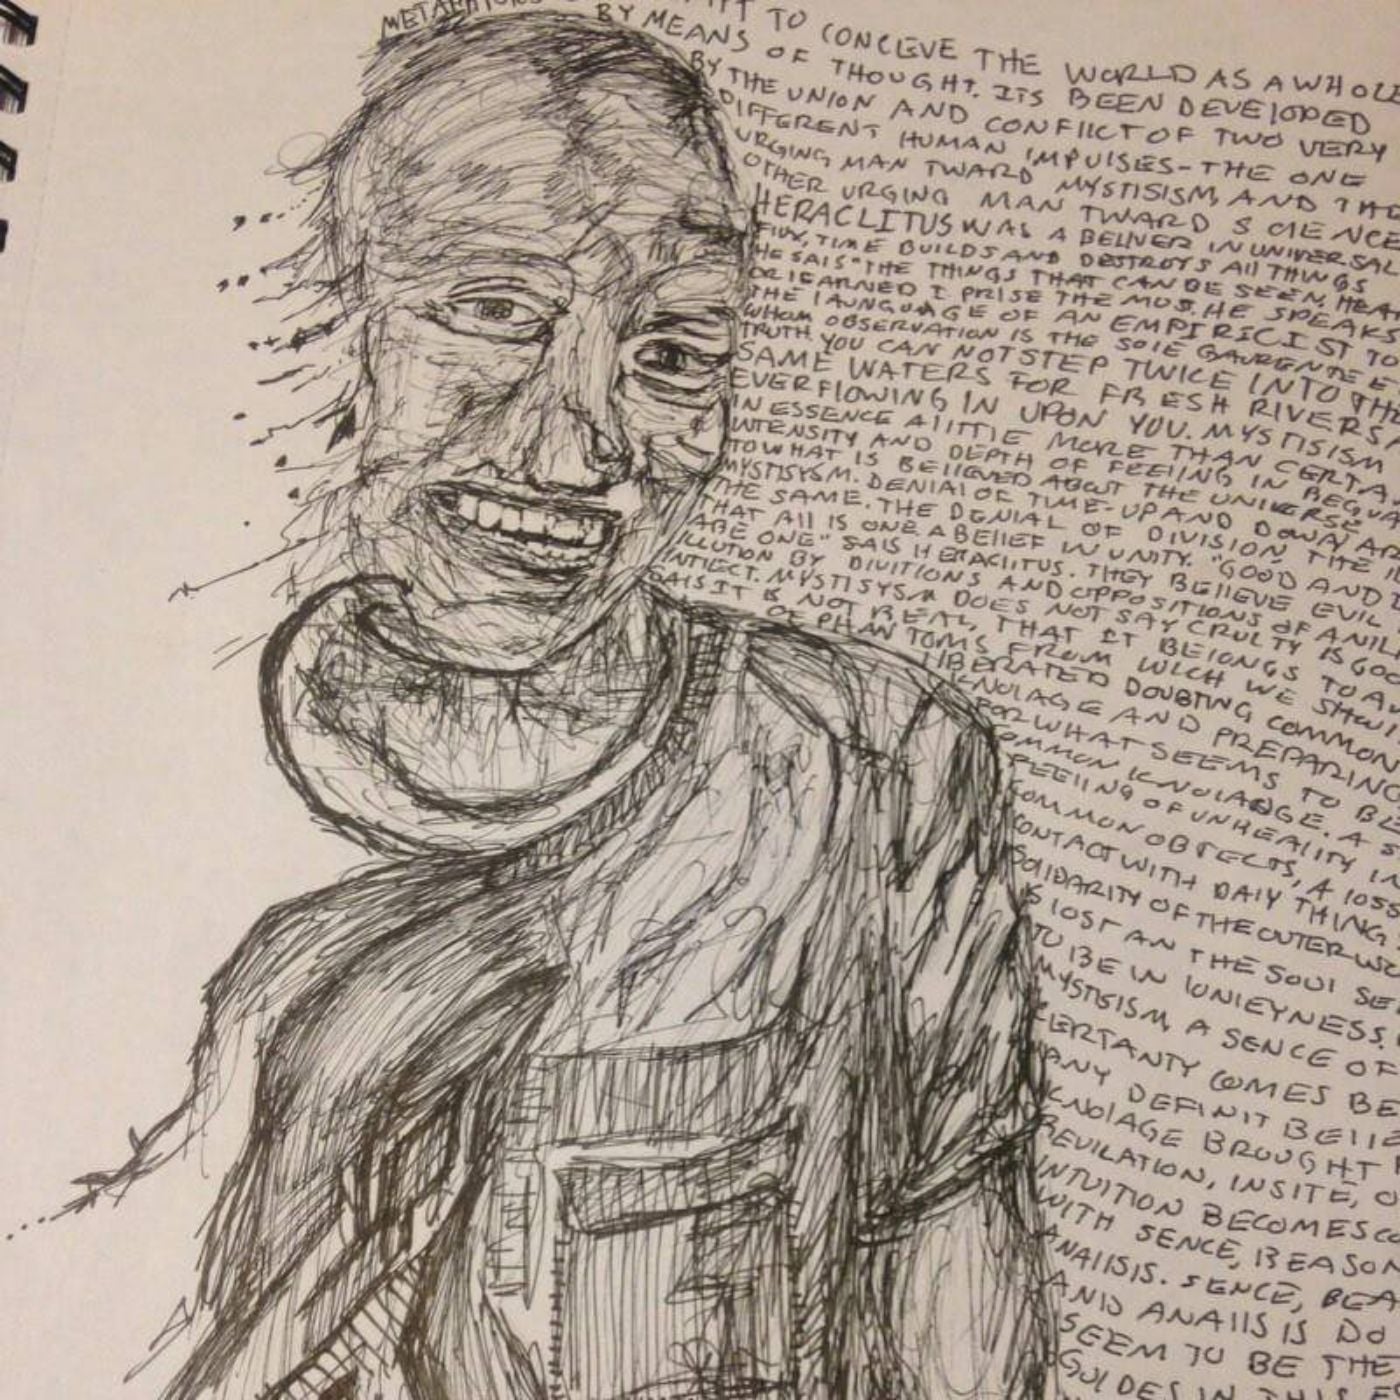 TO CONCLEVE THE WORLD AS A WHOLE
BY MEANS OF THOUGHT. ITS BEEN DEVELOPED
BY THE UNION AND CONFLICT OF TWO VERY
DIFFERENT HUMAN IMPULSES - THE ONE
URGING MAN TWARD MYSTISISM, AND THE
OTHER URGING MAN TWARD SCIENCE
HERACLITUS WAS A BELIVER IN UNIVERSAL
FLUX, TIME BUILDS AND DESTROYS All THINGS
HE SAIS "THE THINGS THAT CAN BE SEEN, HEAR
OR LEARNED I PRISE THE MOST. HE SPEAKS
THE LAUNGUAGE OF AN EMPIRICIST TO
WHOM OBSERVATION IS THE SOLE GAURENTEE
TRUTH. YOU CAN NOT STEP TWICE INTO THE
SAME WATERS FOR FRESH RIVERS A
EVERFLOWING IN UPON YOU. MYSTISISM
IN ESSENCE A LITTLE MORE THAN CERTA
INTENSITY AND DEPTH OF FEELING IN REGUR
TO WHAT IS BELIEVED ABOUT THE UNIVERSE
MYSTISYSM. DENIAL OF TIME - UP AND DOWN AR
THE SAME. THE DENIAL OF DIVISION, THE
THAT All IS ONE. A BELIEF IN UNITY. "GOOD AND
ARE ONE" SAIS HERACLITUS. THEY BELIEVE EVIL
ILLUTION BY DIVITIONS AND OPPOSITIONS OF
INTLECT. MYSTISYSM DOES NOT SAY CRULTY IS GOO
SAIS IT IS NOT REAL, THAT IT BELONGS TO
OF PHANTOMS FROM WICH WE SHOUL
LIBERATED DOUBTING COMMON
KNOLAGE AND PREPARING
FOR WHAT SEEMS TO BE
COMMON KNOLAGE. A
FEELING OF UNREALITY IN
COMMON OBJECTS, A LOSS
CONTACT WITH DAIY THING
SOLIDARITY OF THE OUTER WO
IS LOST AN THE SOUL SE
TO BE IN LONLEYNESS.
MYSTISISM, A SENCE OF
CERTANTY COMES BE
ANY DEFINIT BELIE
KNOLAGE BROUGHT
REVILATION, INSITE,
INTUITION BECOMES CO
WITH SENCE, REASON
ANALISIS. SENCE, REA
AND ANALISIS DO
SEEM TO BE THE
GUIDES IN